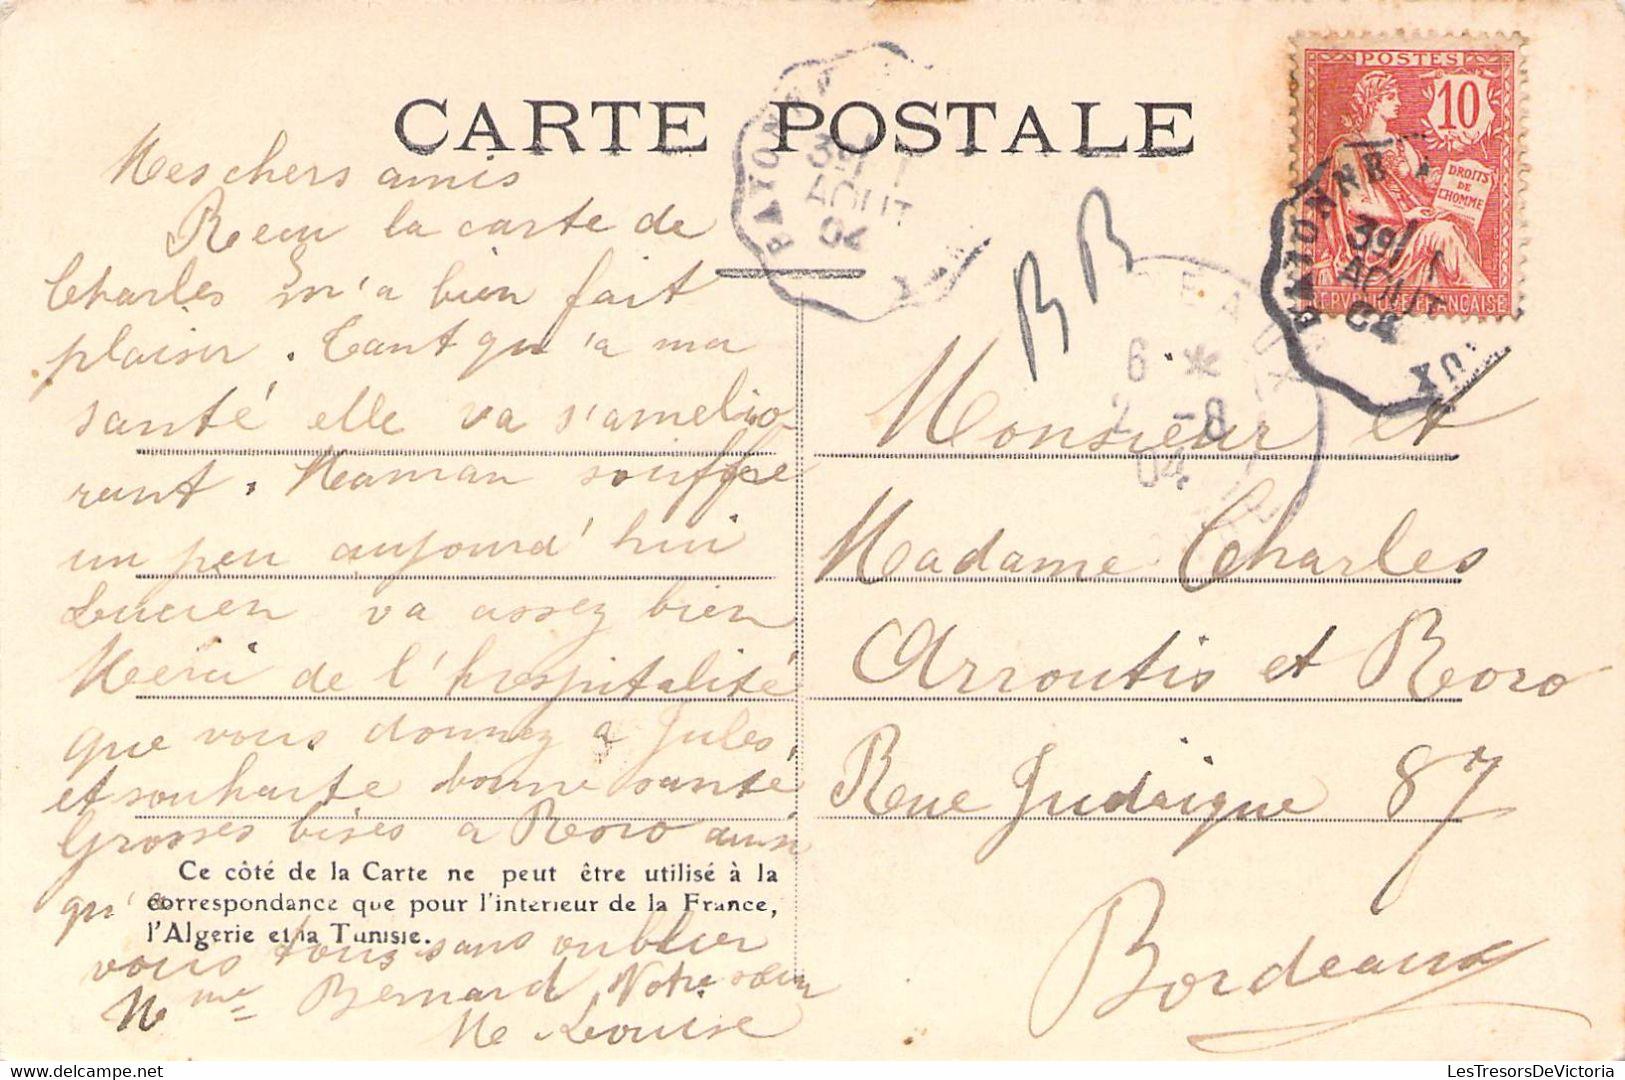 CARTE POSTALE
Mes chers amis
Recu la carte de
Charles m'a bien fait
plaisir. Tant qu'a ma
santé elle va s'amelio-
rant. Maman souffre
un peu aujourd'hui
Lucien va assez bien
Merci de l'hospitalité
que vous donnez a Jules,
et souhaite bonne santé
Grosses bises a Roro ainsi
qu'a
vous tous sans oublier
Mme Bernard Notre sœur
M. Louise
Ce côté de la Carte ne peut être utilisé à la
correspondance que pour l'intérieur de la France,
l'Algerie et la Tunisie.
BAYONNE
39 1
AOUT
04
BB
6 *
2 -8
04
POSTES
10
DROITS
DE
L'HOMME
REPUBLIQUE FRANÇAISE
BAYONNE
39 1
AOUT
04
UX
Monsieur et
Madame Charles
Arroutis et Roro
Rue Judaique 87
Bordeaux
LesTresorsDeVictoria